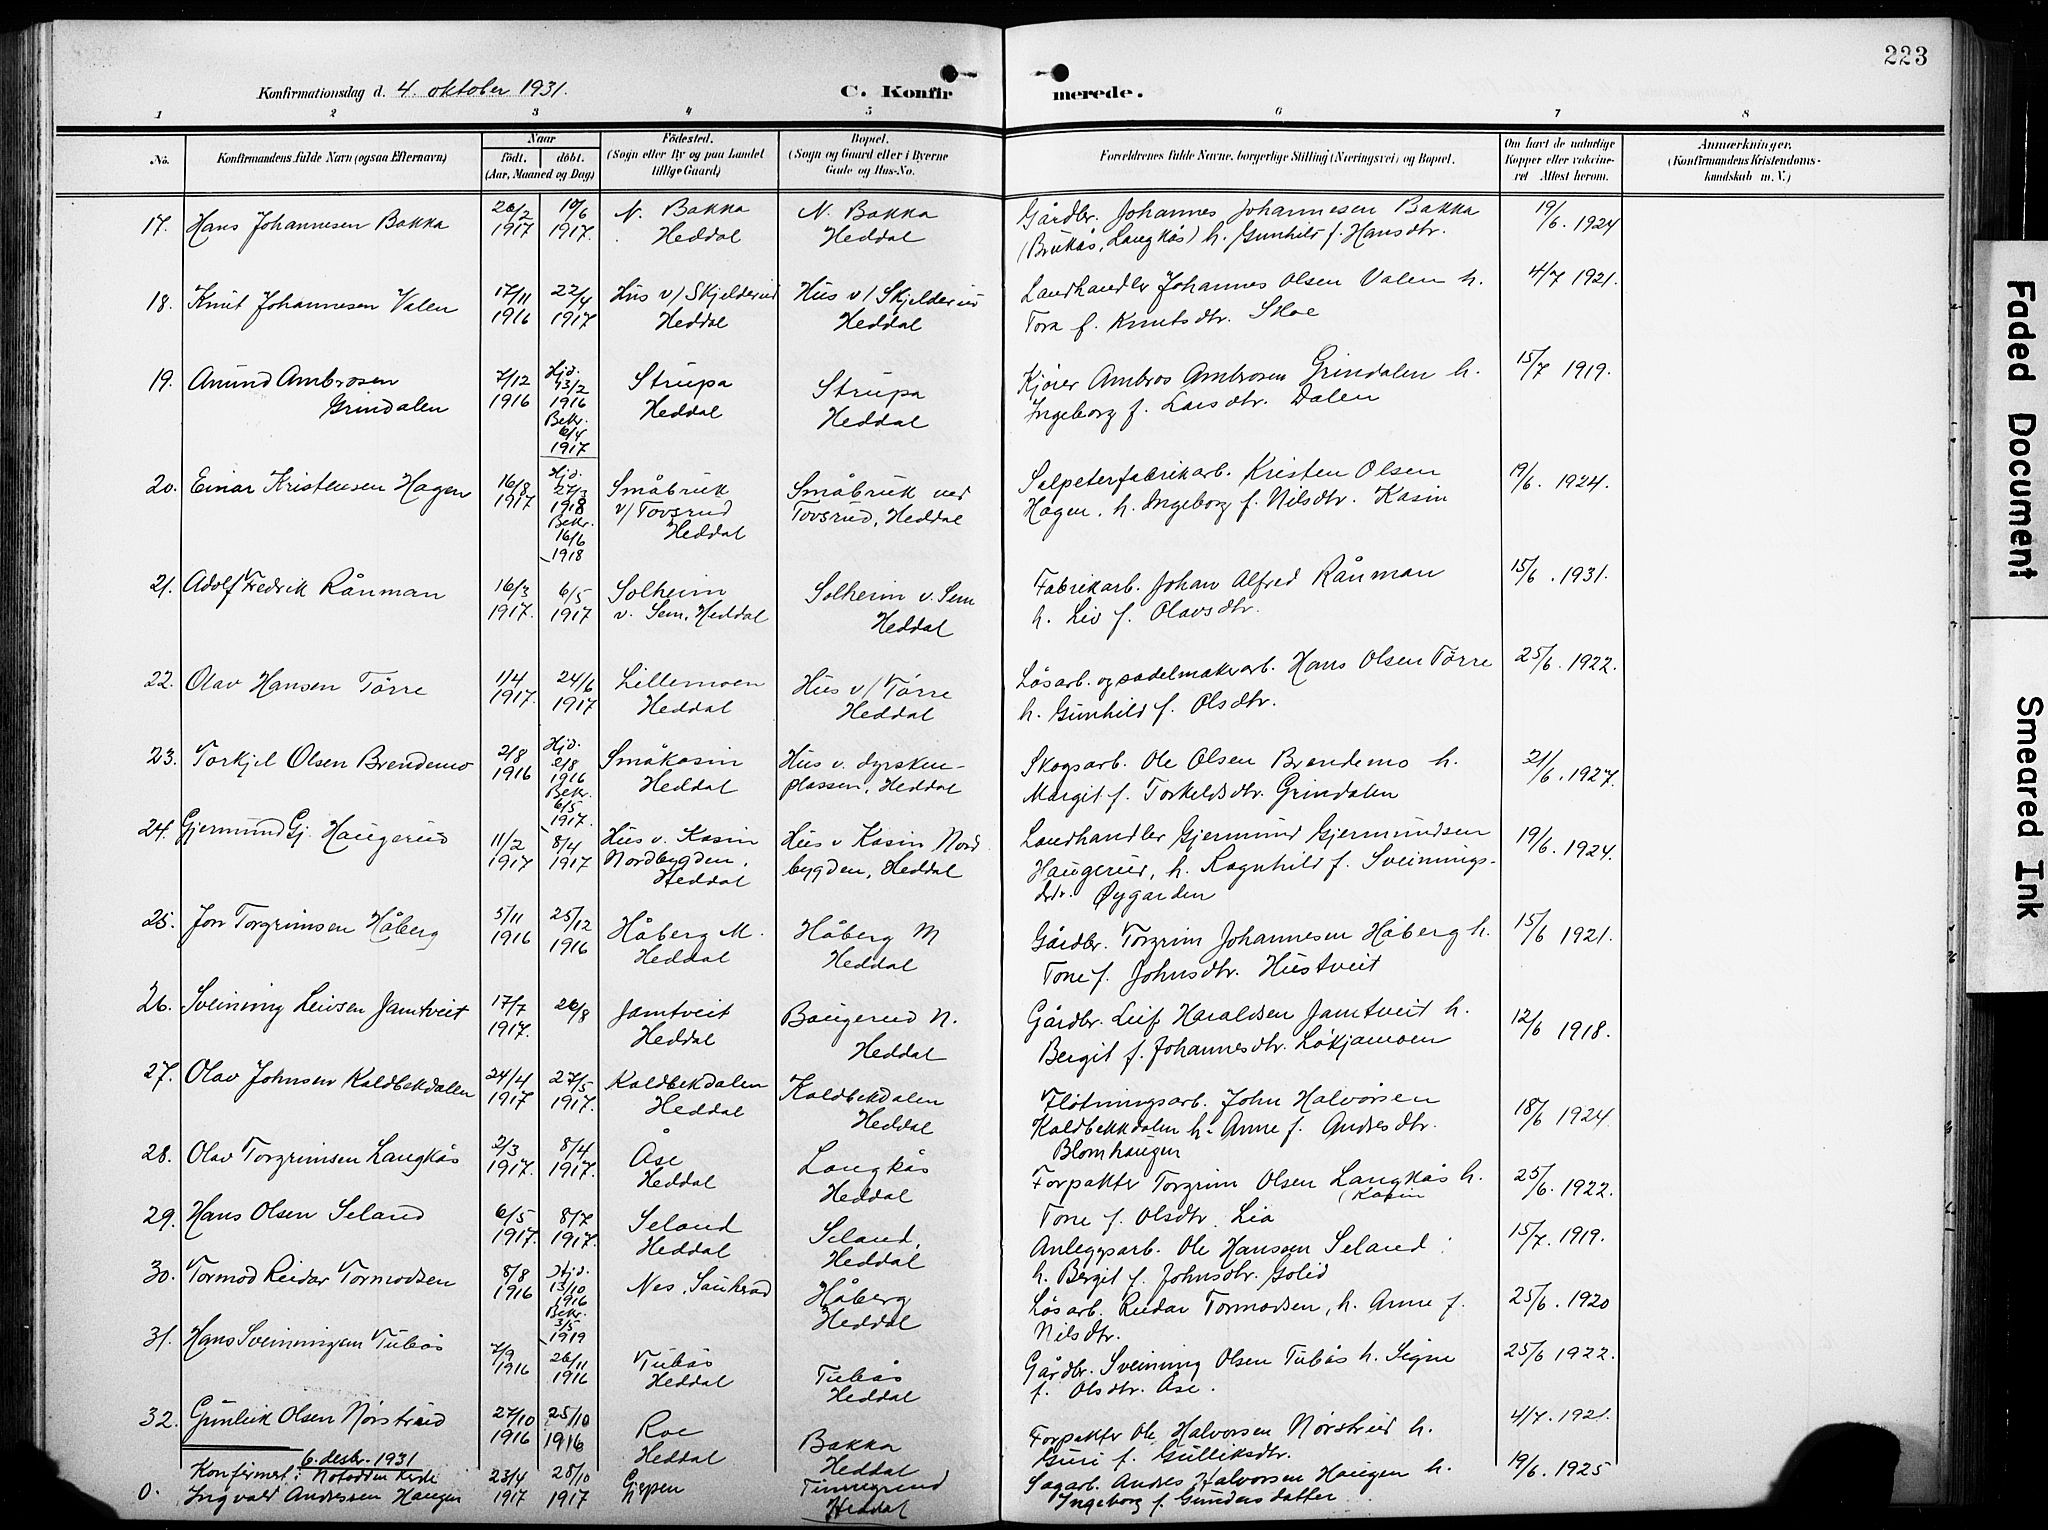 223
Konfirmationsdag d. 4. oktober 1931.
C. Konfir merede.
1 2 3 4 5 6 7 8
No.
Konfirmandens fulde Navn (ogsaa Efternavn)
Naar
født. døbt.
(Aar, Maaned og Dag)
Fødested.
(Sogn eller By og paa Landet
tillige Gaard)
Bopæl.
(Sogn og Gaard eller i Byerne
Gade og Hus-No.
Forældrenes fulde Navne, borgerlige Stilling (Næringsvei) og Bopæl.
Om havt de naturlige
Kopper eller vakcine-
ret Attest herom.
Anmærkninger.
(Konfirmandens Kristendoms-
kundskab m. V.)
17. Hans Johannesen Bakka 26/2 1917 10/6 1917.
N. Bakka
Heddal
N. Bakka
Heddal
Gårdbr. Johannes Johannesen Bakka
(Brukås, Langkås) h. Gunhild f. Hansdtr.
19/6. 1924
18. Knut Johannesen Valen 17/11 1916 22/4 1917
Hus v/ Skjelderud
Heddal
Hus v/ Skjelderud
Heddal
Landhandler Johannes Olsen Valen h.
Tora f. Knutsdtr. Skoe
4/7 1921.
19. Anund Ambrosen
Grindalen
7/12 1916
Hjd.
13/2
1916
Bekr.
6/4
1917
Strupa
Heddal
Strupa
Heddal
Kjører Ambros Ambrosen Grindalen h.
Ingeborg f. Larsdtr. Dalen
15/7 1919.
20. Einar Kristensen Hagen 16/8 1917
Hjd.
27/3
1918
Bekr.
16/6
1918
Småbruk
v/ Tovsrud
Heddal
Småbruk ved
Tovsrud, Heddal
Salpeterfabrikarb. Kristen Olsen
Hagen. h. Ingeborg f. Nilsdtr. Kasin
19/6. 1924.
21. Adolf Fredrik Rånman 16/3 1917. 6/5 1917
Solheim
v. Sem, Heddal
Solheim v. Sem
Heddal
Fabrikarb. Johan Alfred Rånman
h. Liv f. Olavsdtr.
15/6. 1931.
22. Olav Hansen Tørre 1/4 1917. 24/6 1917
Lillemoen
Heddal
Hus v/ Tørre
Heddal
Løsarb. og sadelmakerarb. Hans Olsen Tørre
h. Gunhild f. Olsdtr.
25/6. 1922.
23. Torkjel Olsen Brendemo 2/8 1916
Hjd.
2/8
1916
Bekr.
6/5
1917.
Småkasin
Heddal
Hus v. dyrsken-
plassen, Heddal
Skogsarb. Ole Olsen Brendemo h.
Margit f. Torkeldsdtr. Grindalen
21/6. 1927.
24. Gjermund Gj. Haugerud 11/2 1917 8/4 1917
Hus v. Kasin
Nordbygden,
Heddal
Hus v Kasin Nord
bygden, Heddal
Landhandler Gjermund Gjermundsen
Haugerud, h. Ragnhild f. Sveinungs-
dtr. Øygarden
19/6. 1924.
25. Jon Torgrimsen Håberg 5/11 1916 25/12 1916
Håberg M.
Heddal
Håberg M
Heddal
Gårdbr. Torgrim Johannesen Håberg h.
Tone f. Johnsdtr. Hustveit
15/6 1921.
26. Sveinung Leivsen Jamtveit 17/7 1917. 26/8
Jamtveit
Heddal
Baugerud N.
Heddal
Gårdbr. Leif Haraldsen Jamtveit h.
Bergit f. Johannesdtr. Løkjamoen
12/6 1918.
27. Olav Johnsen Kaldbekdalen 24/4 1917 27/5 1917.
Kaldbekdalen
Heddal
Kaldbekdalen
Heddal
Fløtningsarb. John Halvorsen
Kaldbekkdalen h. Anne f. Andresdtr.
Blomhaugen
18/6 1924
28. Olav Torgrimsen Langkås 2/3 1917. 8/4 1917.
Åse
Heddal
Langkås
Heddal
Forpakter Torgrim Olsen Langkås h.
(Kasin
Tone f. Olsdtr. Lia
25/6. 1922.
29. Hans Olsen Seland 6/5 1917. 8/7 1917.
Seland
Heddal
Seland,
Heddal
Anleggsarb. Ole Hanssen Seland
h. Bergit f. Johnsdtr. Golid
15/7. 1919.
30. Tormod Reidar Tormodsen 8/8 1916
Hjd.
13/10
1916
Bekr.
3/5
1919
Nes, Sauherad
Håberg
Heddal
Løsarb. Reidar Tormodsen, h. Anne f.
Nilsdtr.
25/6. 1920
31. Hans Sveinungsen Tubås 7/9 1916 26/11 1916
Tubås
Heddal
Tubås
Heddal
Gårdbr. Sveinung Olsen Tubås h. Signe
f. Olsdtr. Åse.
25/6 1922.
32. Gunleik Olsen Nørstrud 27/10 1916 25/10 1916
Roe
Heddal
Bakka
Heddal
Forpakter Ole Halvorsen Nørstrud h.
Guri f. Gulliksdtr.
4/7. 1921.
6. desbr. 1931
Konfirmert i Notodden kirke
0. Ingvald Andressen Haugen 23/4 1917 28/10 1917
Gjerpen
Tinnegrend
Heddal
Sagarb. Andres Halvorsen Haugen h.
Ingeborg f. Gundersdatter
19/6. 1925
Faded Document
Smeared Ink